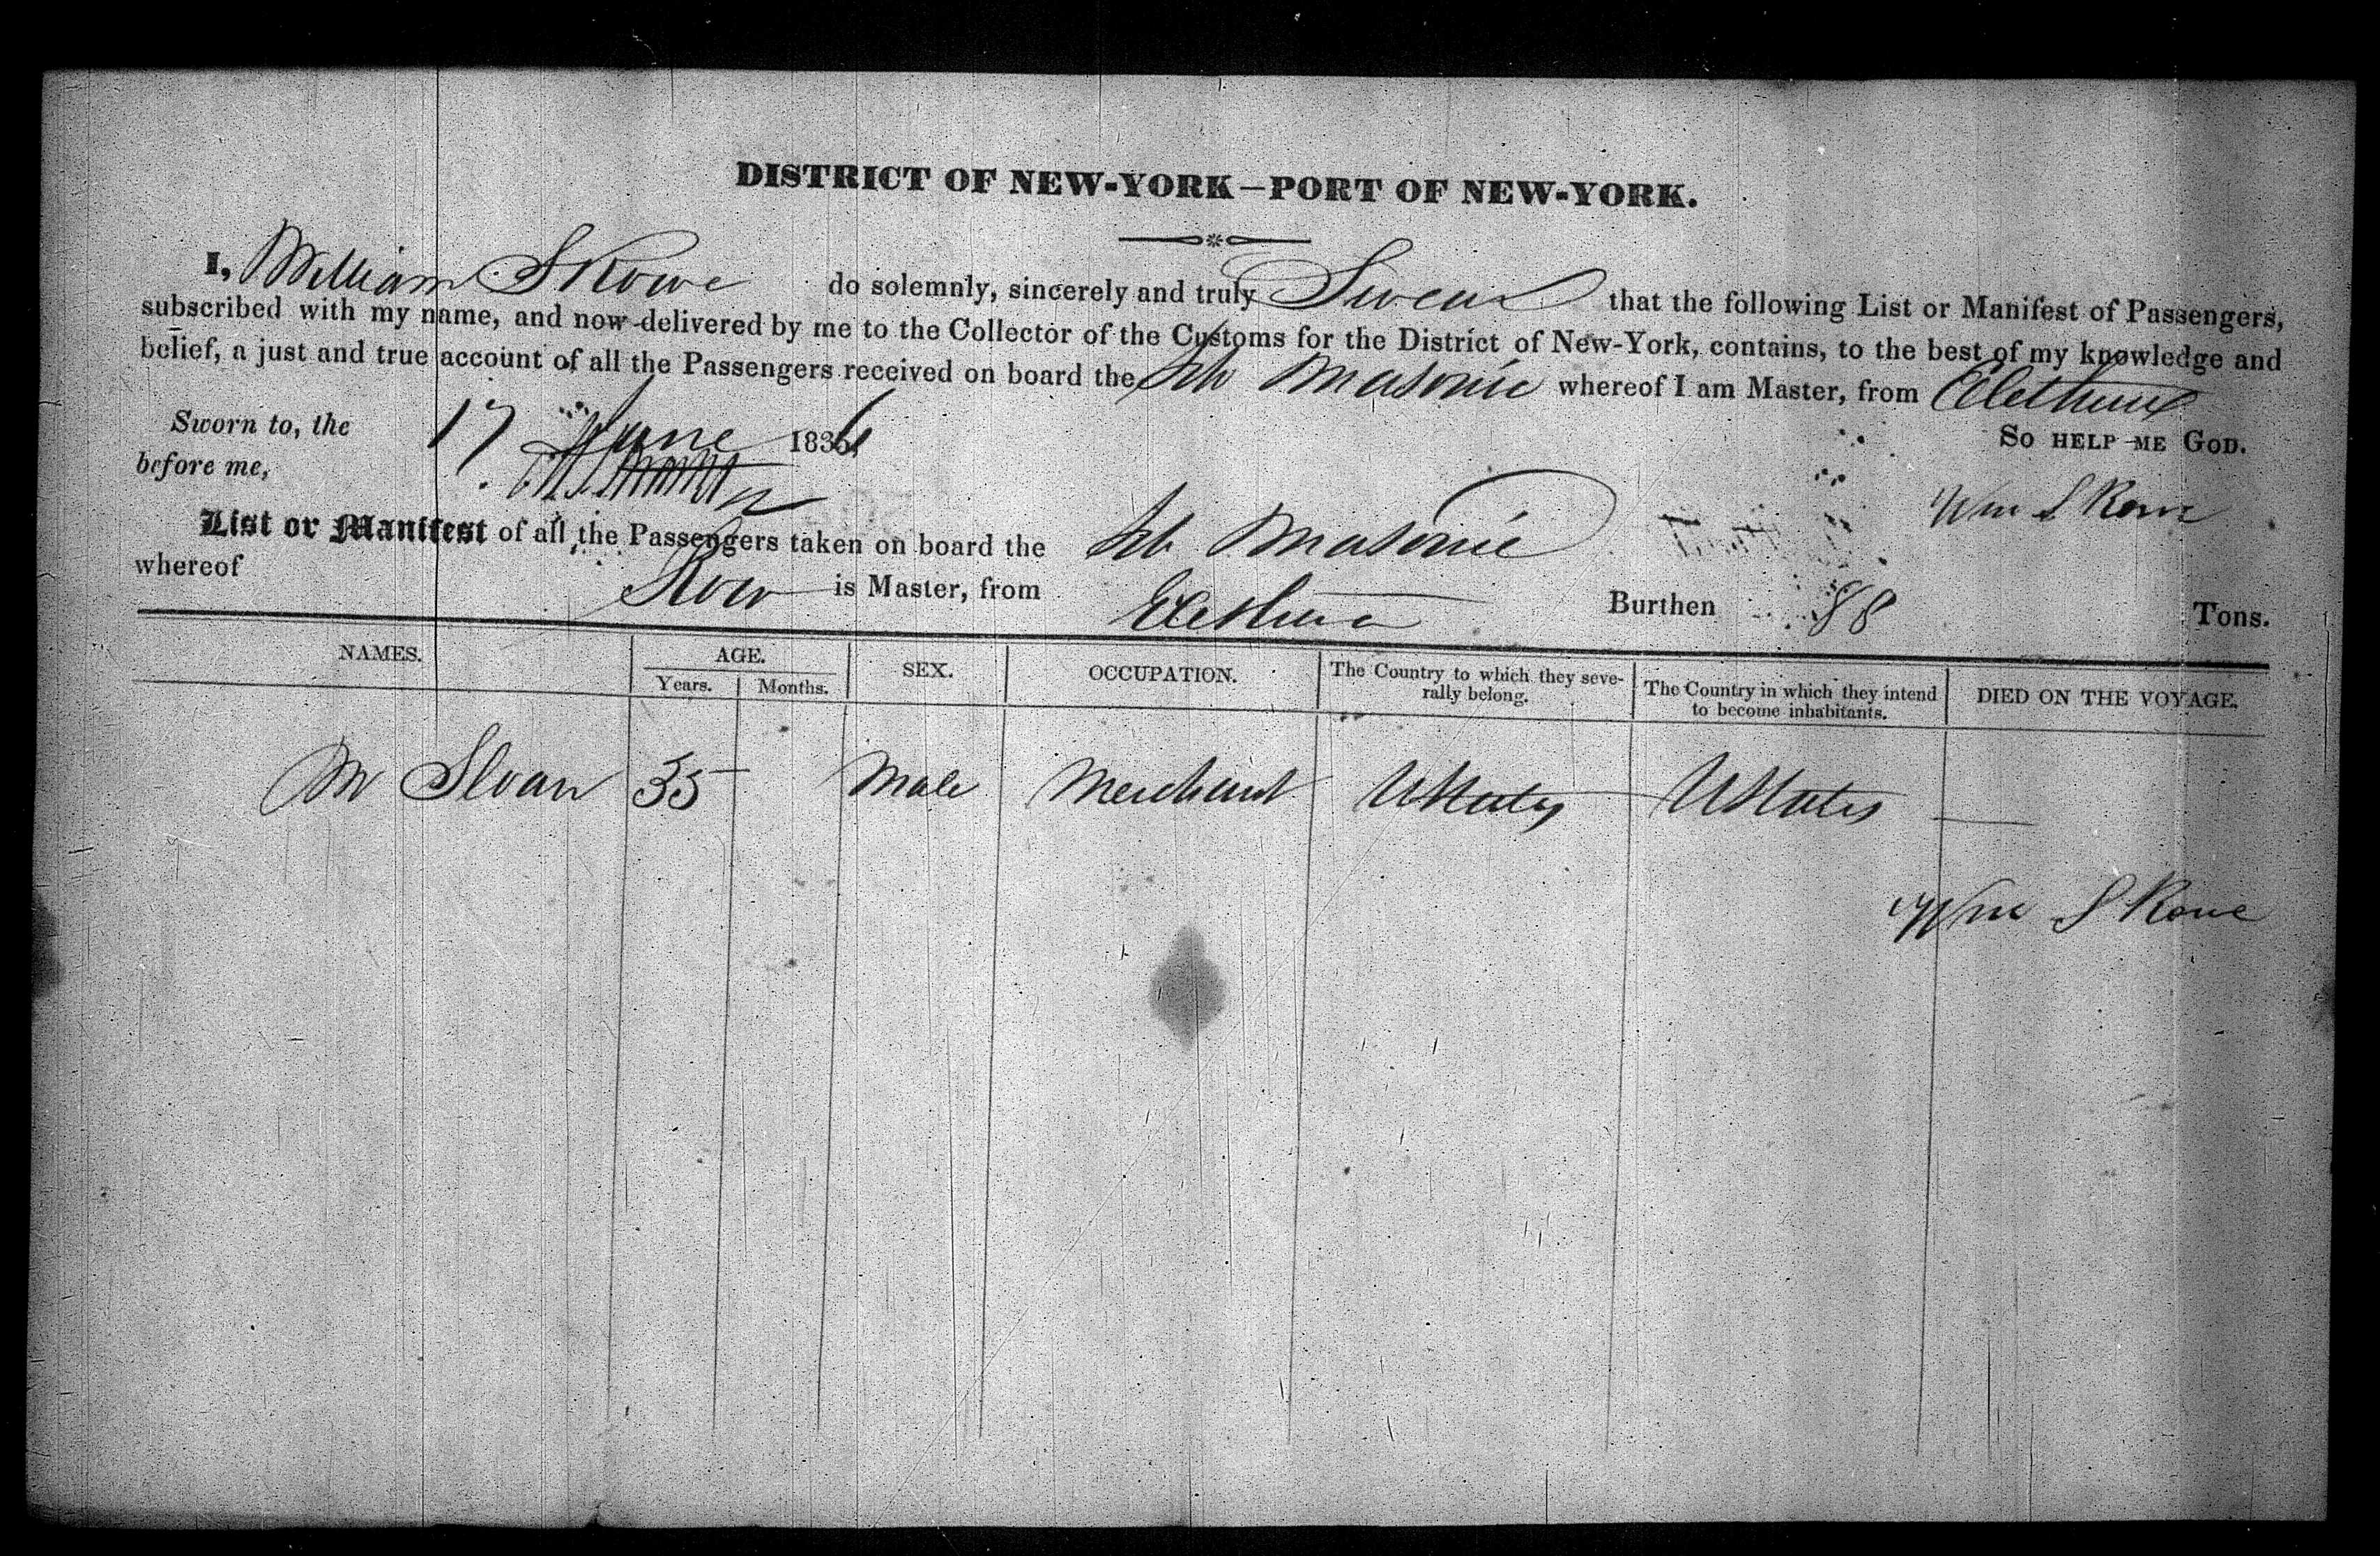 DISTRICT OF NEW-YORK—PORT OF NEW-YORK.
I, William S Rowe do solemnly, sincerely and truly Swear that the following List or Manifest of Passengers,
subscribed with my name, and now delivered by me to the Collector of the Customs for the District of New-York, contains, to the best of my knowledge and
belief, a just and true account of all the Passengers received on board the Sch Masonic whereof I am Master, from Eletheura
Sworn to, the 17 June 1836 SO HELP ME GOD.
before me,
Wm S Rowe
List or Manifest of all the Passengers taken on board the Sch Masonic
whereof Rowe is Master, from Eletheura Burthen 88 Tons.
NAMES. AGE. SEX. OCCUPATION. The Country to which they seve- The Country in which they intend DIED ON THE VOYAGE.
Years. Months. rally belong. to become inhabitants.
Mr Sloan 35 Male Merchant UStates UStates —
Wm S Rowe